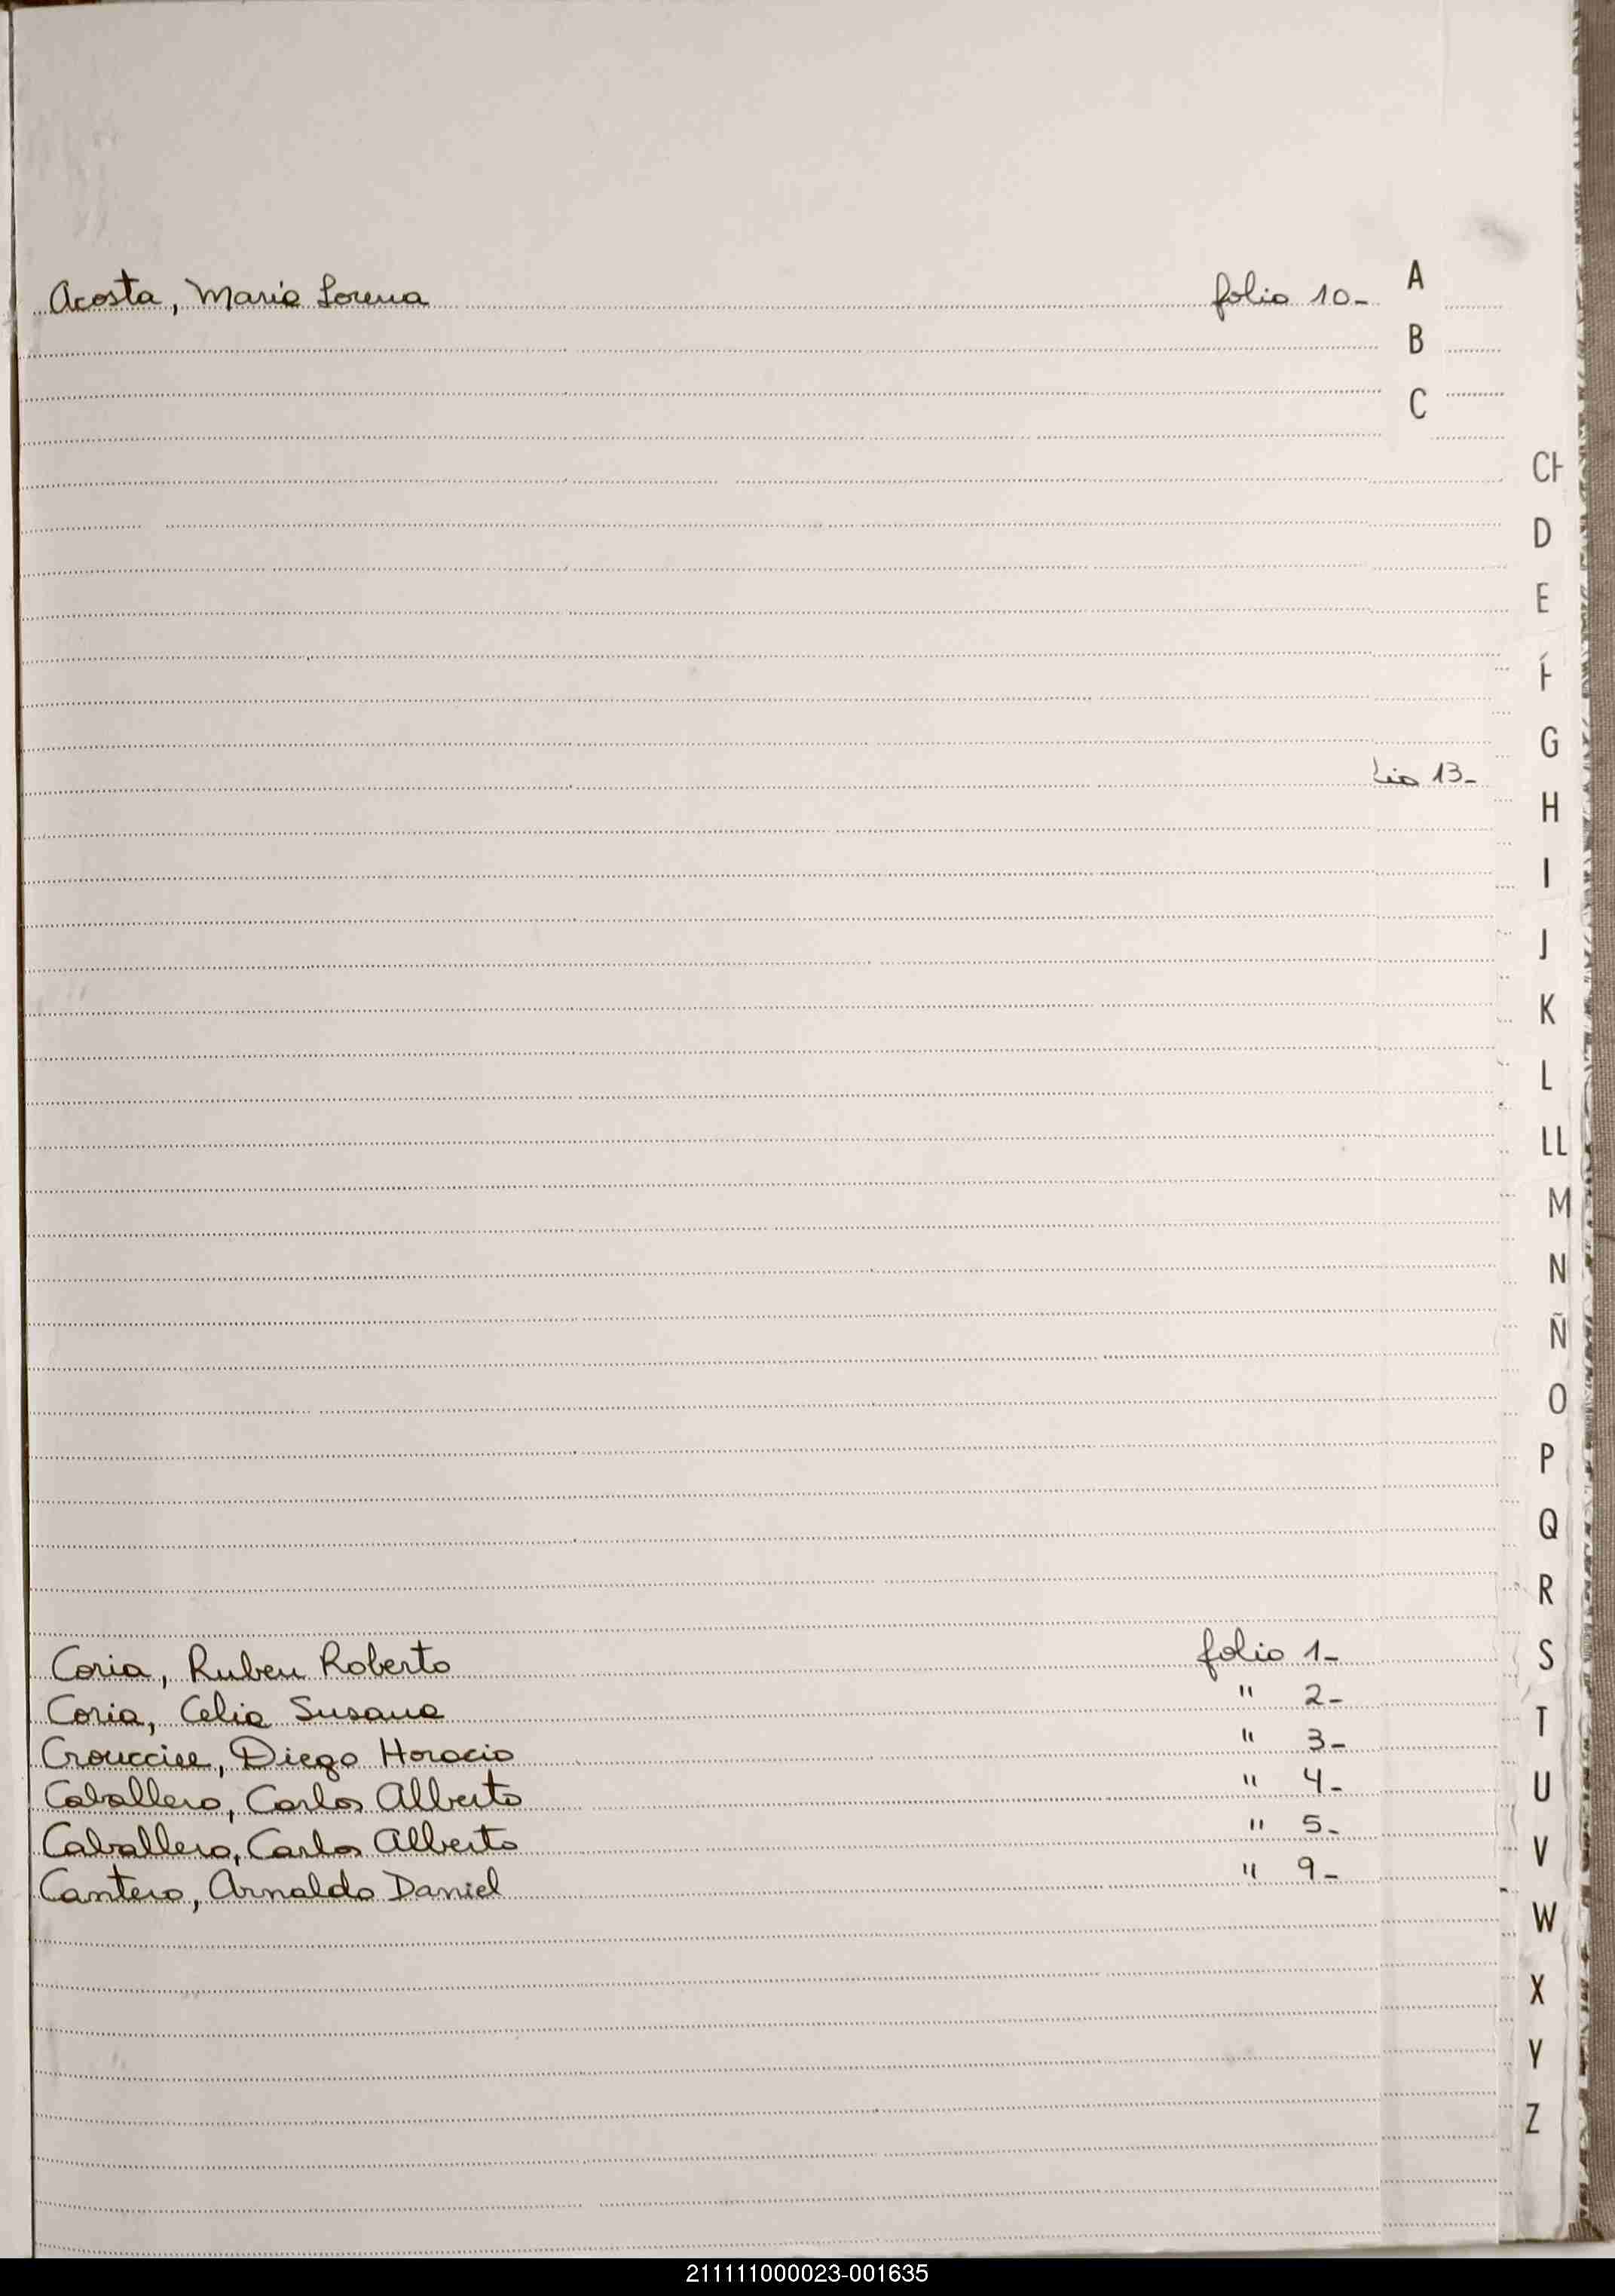 Acosta, Maria Lorena folio 10-
A
B
C
CH
D
E
F
G
lio 13-
H
I
J
K
L
LL
M
N
Ñ
O
P
Q
R
S
T
U
V
W
X
Y
Z
Coria, Ruben Roberto folio 1-
Coria, Celia Susana " 2-
Diego Horacio " 3-
Caballero, Carlos Alberto " 4-
Caballero, Carlos Alberto " 5-
Cantero, Arnaldo Daniel " 9-
211111000023-001635